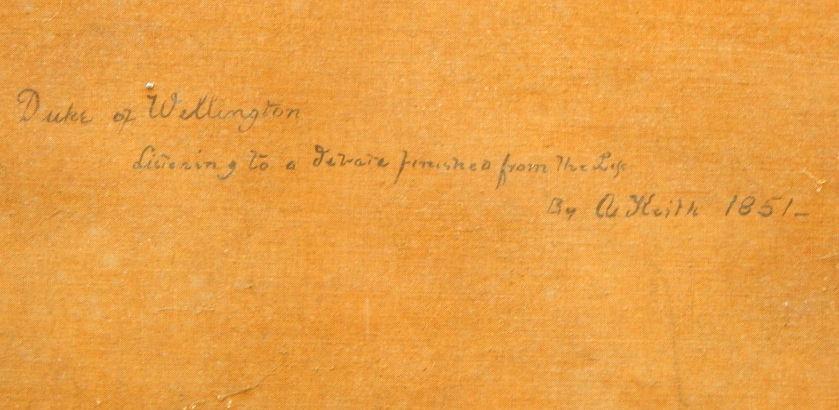 Duke of Wellington
Listening to a Debate finished from the Life
By A Keith 1851_